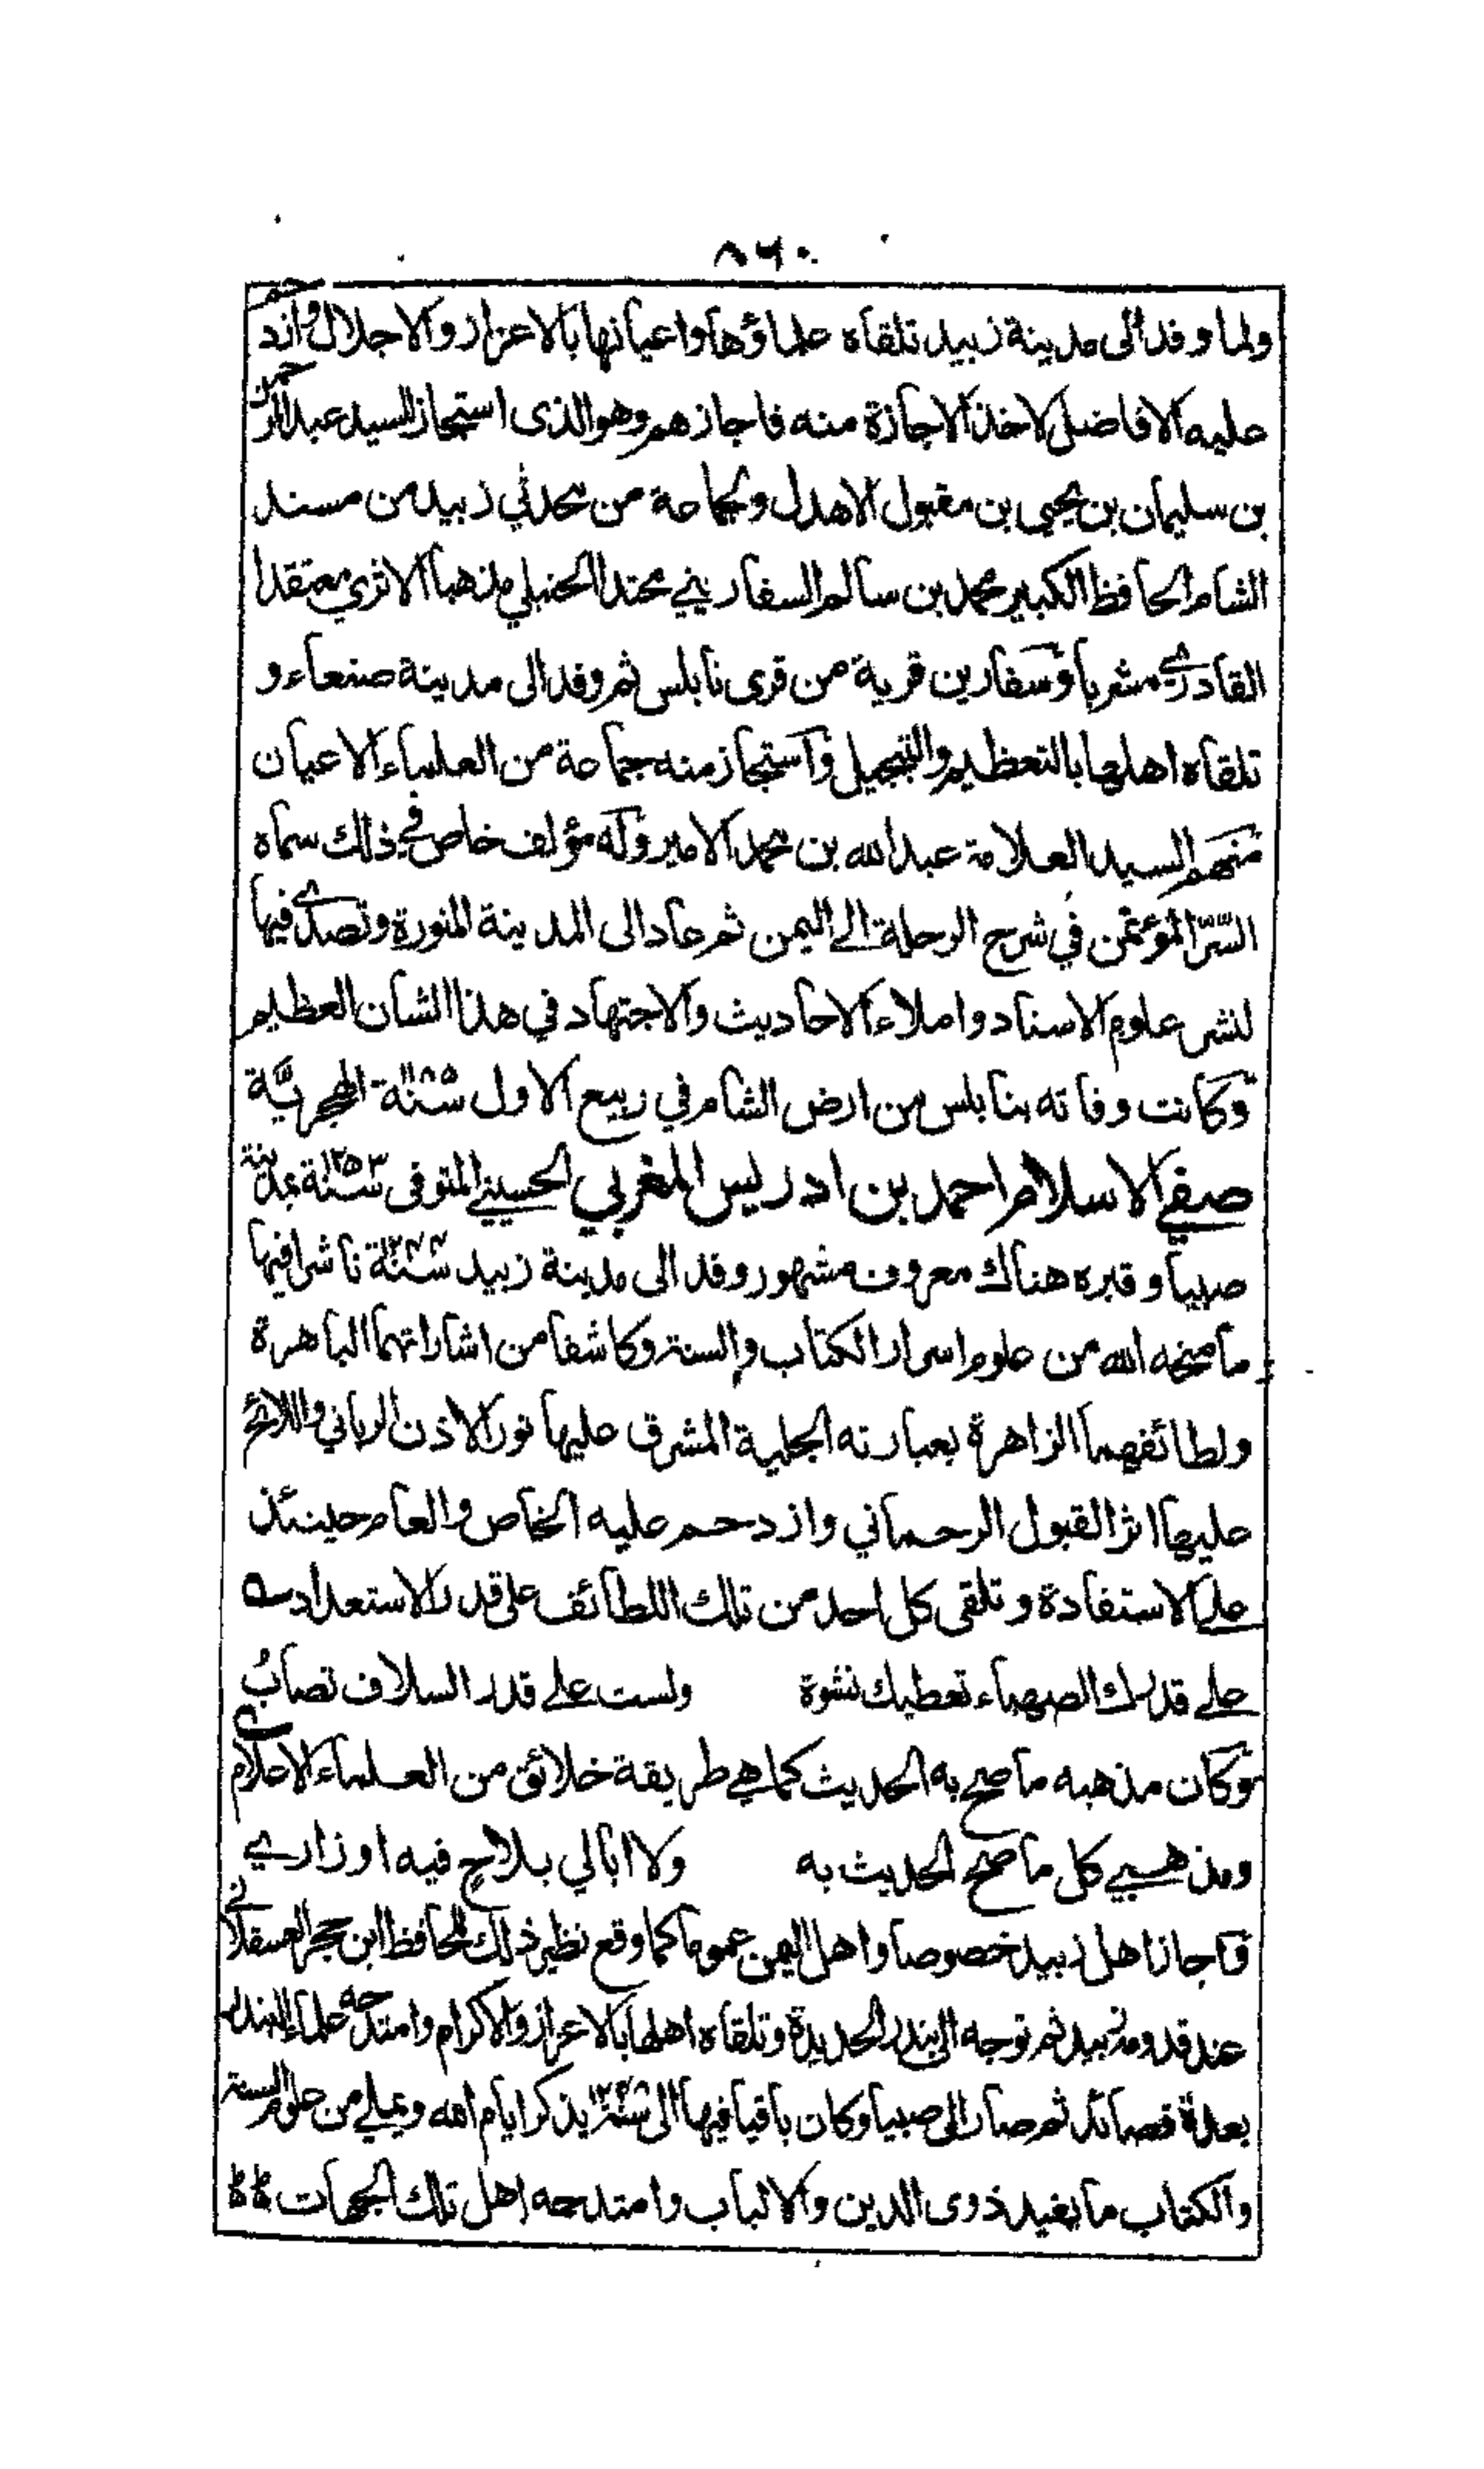 ٨٦٠
ولما وفد الى مدينة زبيد تلقاه علماؤها واعيانها بالاعزاز والاجلال وازدحم
عليه الافاضل لاخذ الاجازة منه فاجازهم وهو الذى استجاز للسيد عبد الرحمن
بن سليمان بن يحيى بن مقبول الاهدل ولجماعة من محدثي زبيد من مسند
الشام الحافظ الكبير محمد بن سالم السفاريني محتدا الحنبلي مذهبا الاثري معتقدا
القادري مشربا وسفارين قرية من قرى نابلس ثم وفد الى مدينة صنعاء و
تلقاه اهلها بالتعظيم والتبجيل واستجاز منه جماعة من العلماء الاعيان
منهم السيد العلامة عبد الله بن محمد الامير وله مؤلف خاص في ذلك سماه
السّرّ المؤتمن في شرح الرحلة الى اليمن ثم عاد الى المدينة المنورة وتصدى فيها
لنشر علوم الاسناد واملاء الاحاديث والاجتهاد في هذا الشان العظيم
وكانت وفاته بنابلس من ارض الشام في ربيع الاول سنة الهجريَّة
صفي الاسلام احمد بن ادريس المغربي الحسيني المتوفى سنة ١٢٥٣ بمدينة
صبيا وقبره هناك معروف مشهور وفد الى مدينة زبيد سنة ناشرا فيها
ما منحه الله من علوم اسرار الكتاب والسنة وكاشفا من اشاراتهما الباهرة
ولطائفهما الزاهرة بعبارته الجلية المشرق عليها نور الاذن الرباني واللائح
عليها اثر القبول الرحماني وازدحم عليه الخاص والعام حينئذ
على الاستفادة وتلقى كل احد من تلك اللطائف على قدر الاستعداد سه
على قدرك الصهباء تعطيك نشوة ولست على قدر السلاف تصابُ
وكان مذهبه ما صح به الحديث كما هي طريقة خلائق من العلماء الاعلام
ومذهبي كل ما صح الحديث به ولا ابالي بلاحٍ فيه او زاري
فاجاز اهل زبيد خصوصا واهل اليمن عموما كما وقع نظير ذلك للحافظ ابن حجر العسقلاني
عند قدومه زبيد ثم توجه الى بندر الحديدة وتلقاه اهلها بالاعزاز والاكرام وامتدحه علماء البندر
بعدة قصائد ثم صار الى صبيا وكان باقيا فيها الى سنة يذكر ايام الله ويملي من علوم السنة
والكتاب ما يفيد ذوى الدين والالباب وامتدحه اهل تلك الجهات